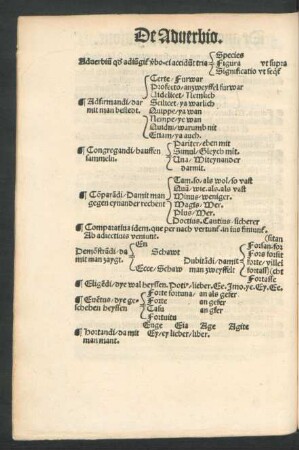 De Aduerbio.
Species
Aduerbiũ qđ adiũgit̃ v̾bo ei accidũt tria Figura vt supra
Significatio vt seqt̃
Certe / Furwar
Profecto / anzweyffel furwar
Uidelicet / Nemlich
¶ Adfirmandi / dar Scilicet / ya warlich
mit man besteet. Quippe / ya wan
Nempe / ye wan
Quidni / warumb nit
Etiam / ya auch.
Pariter / eben mit
¶ Congregandi / hauffen Simul / Gleych mit.
sammeln. Una / Miteynander
darmit.
Tam. so / als wol / so vast
Quã / wie. also. als vast
¶ Cõparãdi / Damit man Minus / weniger.
gegen eynander rechent Magis / Mer.
Plus / Mer.
Potius. Cantius / sicherer
¶ Comparatiua idem. que per nach verũt̃ an ius finiunt̃.
Ad adiectiuis veniunt. (sitan
En Forsan. for
Demõstrãdi / da Schawt Fors forsit
mit man zaygt. Dubitãdi / damit forte / villei
Ecce / Schaw man zweyffelt fortass(cht
Fortasse
¶ Eligẽdi / dye wal heyssen. Poti9 / lieber. Ee. Imo. ye. Ey. Ee.
Forte fortuna / an als gefer
¶ Euẽtus / dye ge Forte an gefer
scheben heyssen Casu an gfer
Fortuitu
Enge Eia Age Agite
¶ Hortandi / da mit Ey / ey lieber / liber.
man mant.